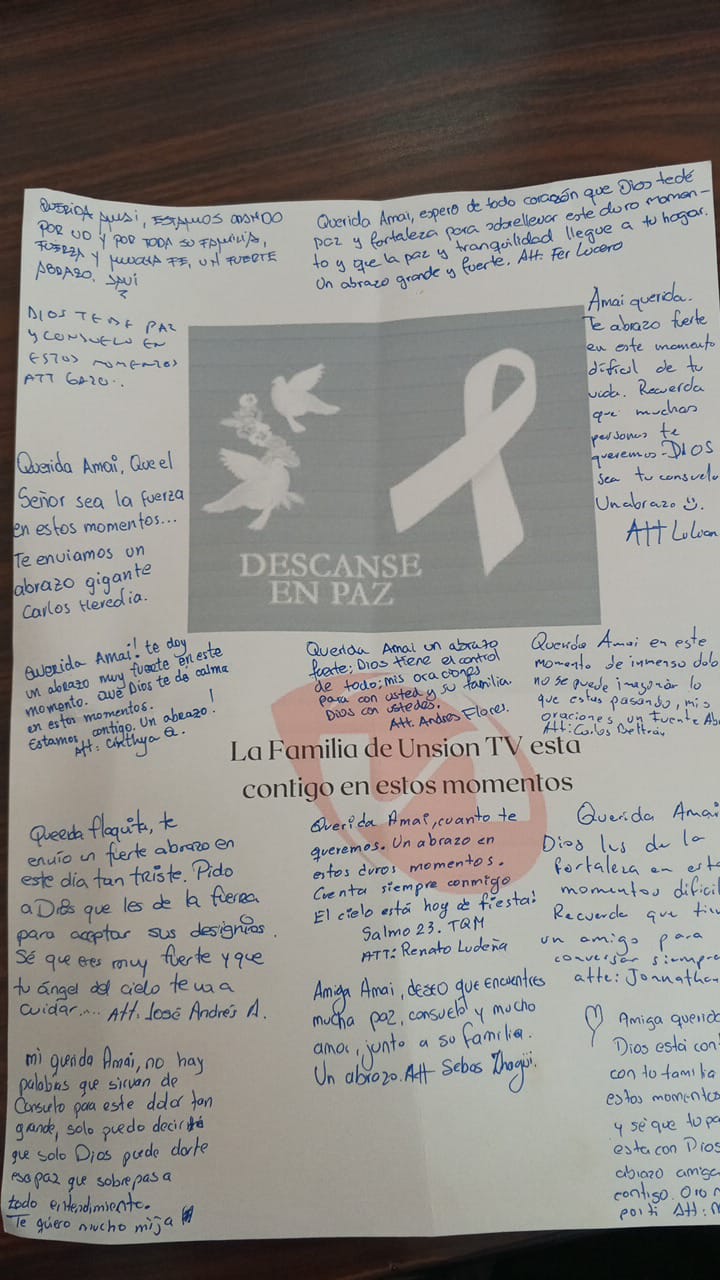 QUERIDA AMAI, ESTAMOS ORANDO
POR UD Y POR TODA SU FAMILIA,
FUERZA Y MUCHA FE, UN FUERTE
ABRAZO. JAVI
Querida Amai, espero de todo corazón que Dios te dé
paz y fortaleza para sobrellevar este duro momen-
to y que la paz y tranquilidad llegue a tu hogar.
Un abrazo grande y fuerte. Att: Fer Lucero
DIOS TE DE PAZ
Y CONSUELO EN
ESTOS MOMENTOS
ATT GATO..
Amai querida.
Te abrazo fuerte
en este momento
dificil de tu
vida. Recuerda
que muchas
personas te
queremos - DIOS
sea tu consuelo
Un abrazo
Att
Querida Amai, Que el
Señor sea la fuerza
en estos momentos...
Te enviamos un
abrazo gigante
Carlos Heredia.
DESCANSE
EN PAZ
Querida Amai! te doy
un abrazo muy fuerte en este
momento. Que Dios te de calma
en estos momentos.
Estamos contigo. Un abrazo!
Att: Cinthya Q.
Querida Amai un abrazo
fuerte; Dios tiene el control
de todo; mis oraciones
para con usted y su familia.
Dios con ustedes.
Att. Andres Flores.
Querida Amai en este
momento de inmenso dolo
no se puede imaginar lo
que estas pasando, mis
oraciones, un fuente Ab
Att: Carlos Beltrán
La Familia de Unsion TV esta
contigo en estos momentos
Querida flaquita, te
envio un fuerte abrazo en
este día tan triste. Pido
a Dios que les de la fuerza
para aceptar sus designios.
Sé que eres muy fuerte y que
tu ángel del cielo te va a
cuidar... Att. José Andrés A.
Querida Amai, cuanto te
queremos. Un abrazo en
estos duros momentos.
Cuenta siempre conmigo
El cielo está hoy de fiesta!
Salmo 23. TQM
ATT: Renato Ludeña
Querida Amai
Dios les de la
fortaleza en est
momentos dificil
Recuerde que tie
un amigo para
conversar siempre
atte: Jonnathan
Amiga Amai, deseo que encuentres
mucha paz, consuelo y mucho
amor, junto a su familia.
Un abrazo. Att Sebas Zhagüi.
mi querida Amai, no hay
palabras que sirvan de
Consuelo para este dolor tan
grande, solo puedo decirte
que solo Dios puede darte
esa paz que sobrepasa
todo entendimiento.
Te quiero mucho mija
Amiga querid
Dios está con
con tu familia
estos momentos
y sé que tu pa
esta con Dios
abrazo amiga
contigo. Oro
por ti Att: